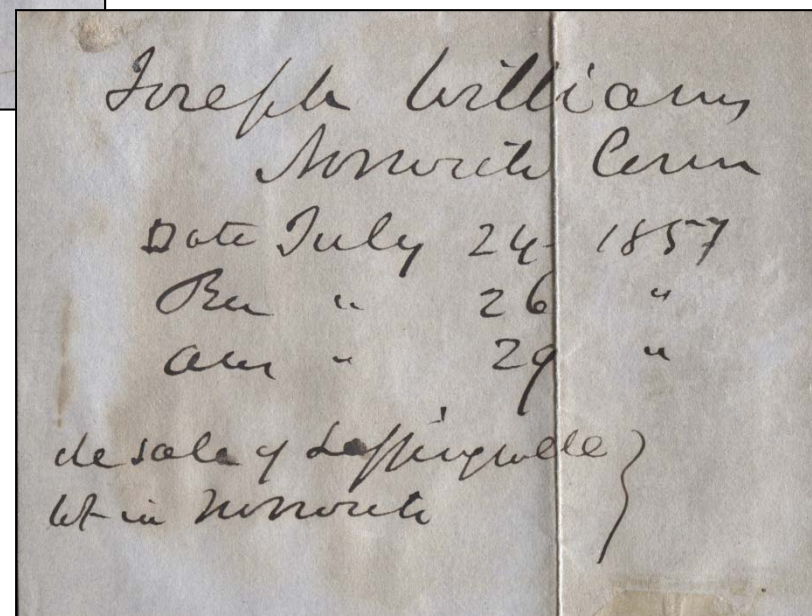 Joseph Williams
Norwich Conn
Date July 24 1857
Rec " 26 "
Ans " 29 "
de sale of Leffingwell
lot in Norwich